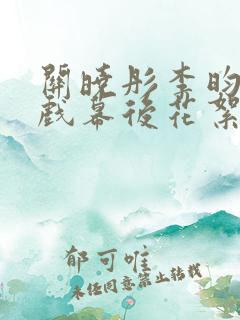 關曉彤李昀
戲幕後花絮
郁可唯
未經同意禁止轉載